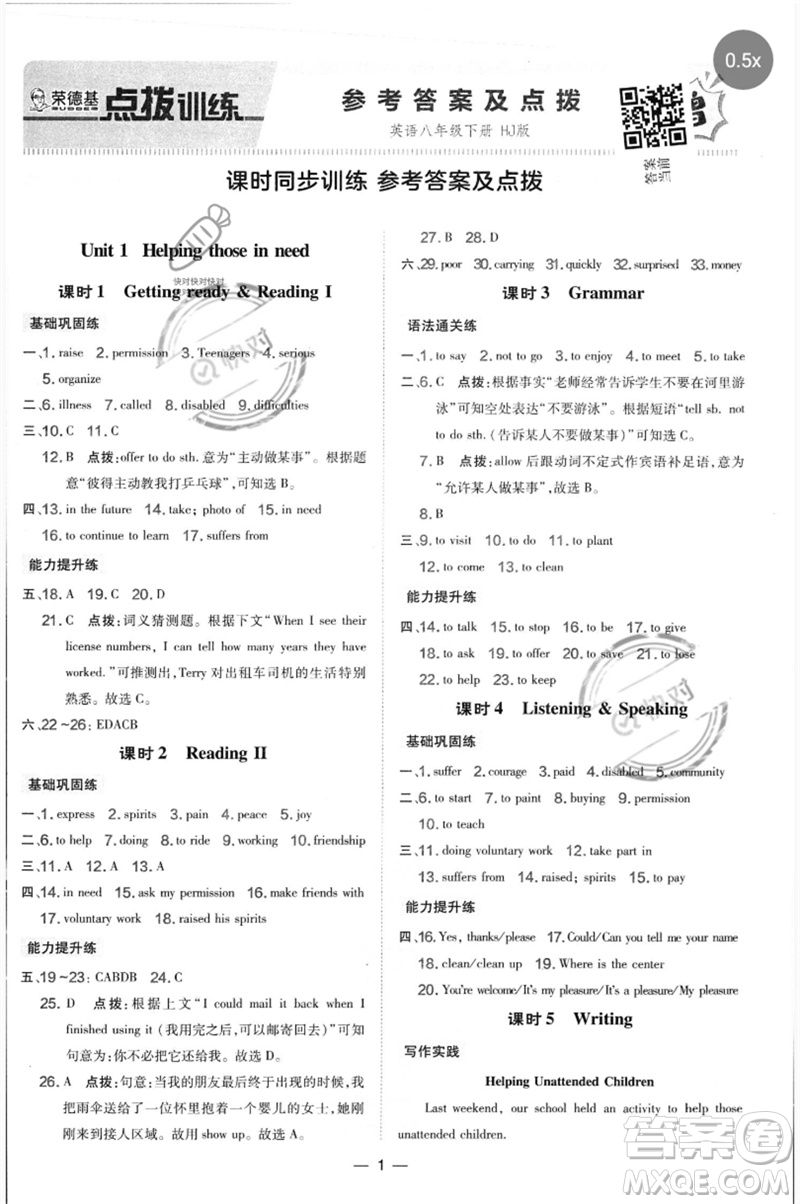 0.5x
荣德基
点拨训练
参考答案及点拨
英语八年级下册 HJ版
答案
当前
课时同步训练 参考答案及点拨
Unit 1 Helping those in need
课时1 Getting ready & Reading I
基础巩固练
一、1. raise 2. permission 3. Teenagers 4. serious
5. organize
二、6. illness 7. called 8. disabled 9. difficulties
三、10. C 11. C
12. B 点拨:offer to do sth. 意为“主动做某事”。根据题
意“彼得主动教我打乒乓球”,可知选 B。
四、13. in the future 14. take; photo of 15. in need
16. to continue to learn 17. suffers from
能力提升练
五、18. A 19. C 20. D
21. C 点拨:词义猜测题。根据下文“When I see their
license numbers, I can tell how many years they have
worked.”可推测出,Terry 对出租车司机的生活特别
熟悉。故选 C。
六、22~26:EDACB
课时2 Reading II
基础巩固练
一、1. express 2. spirits 3. pain 4. peace 5. joy
二、6. to help 7. doing 8. to ride 9. working 10. friendship
三、11. A 12. A 13. A
四、14. in need 15. ask my permission 16. make friends with
17. voluntary work 18. raised his spirits
能力提升练
五、19~23:CABDB 24. C
25. D 点拨:根据上文“I could mail it back when I
finished using it (我用完之后,可以邮寄回去)”可知
句意为:你不必把它还给我。故选 D。
26. A 点拨:句意:当我的朋友最终于出现的时候,我
把雨伞送给了一位怀里抱着一个婴儿的女士,她刚
刚走入接人区域。故用 show up。故选 A。
27. B 28. D
六、29. poor 30. carrying 31. quickly 32. surprised 33. money
课时3 Grammar
语法通关练
一、1. to say 2. not to go 3. to enjoy 4. to meet 5. to make
二、6. C 点拨:根据事实“老师经常告诉学生不要在河里游
泳”可知空处表达“不要游泳”。根据短语“tell sb. not
to do sth. (告诉某人不要做某事)”可知选 C。
7. B 点拨:allow 后跟动词不定式作宾语补足语,意为
“允许某人做某事”。故选 B。
8. B
三、9. to visit 10. to do 11. to plant
12. to come 13. to clean
能力提升练
四、14. to talk 15. to stop 16. to be 17. to give
18. to ask 19. to offer 20. to save 21. to lose
22. to help 23. to keep
课时4 Listening & Speaking
基础巩固练
一、1. suffer 2. courage 3. paid 4. disabled 5. community
二、6. to start 7. to paint 8. buying 9. permission
10. to teach
三、11. doing voluntary work 12. take part in
13. suffered 14. raise; spirits 15. to pay
能力提升练
四、16. Yes, thanks/please 17. Could/Can you tell me your name
18. clean/clean up 19. Where is the center
20. You're welcome/It's my pleasure/It's a pleasure/My pleasure
课时5 Writing
写作实践
Helping Unattended Children
Last weekend, our school held an activity to help those
unattended children.
1
快对快对快对
快对
快对
快对
答案圈
MXQE.COM